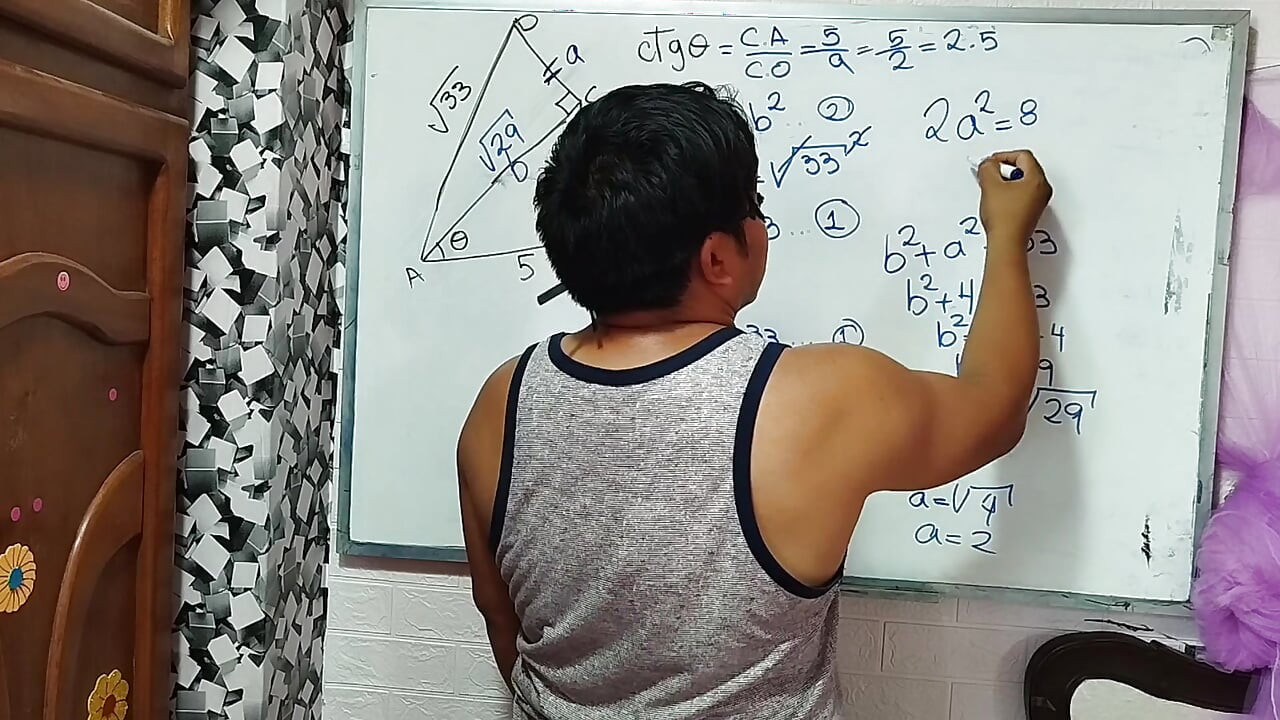 D
a
√33
C
√29
b
θ
A
5
ctgθ = C.A/C.O = 5/a = 5/2 = 2.5
b² .. ②
√33²
... ①
33 ... ①
2a² = 8
b² + a²
b² + 4
b²
4
9
√29
a = √4
a = 2